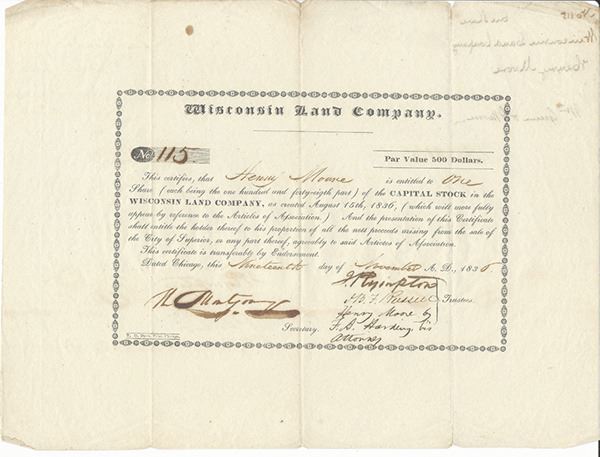 Wisconsin Land Company.
No 115
Par Value 500 Dollars.
This certifies, that Henry Moore is entitled to One
Share (each being the one hundred and forty-eighth part) of the CAPITAL STOCK in the
WISCONSIN LAND COMPANY, as created August 15th, 1836, (which will more fully
appear by reference to the Articles of Association.) And the presentation of this Certificate
shall entitle the holder thereof to his proportion of all the nett proceeds arising from the sale of
the City of Superior, or any part thereof, agreeably to said Articles of Association.
This certificate is transferable by Endorsement.
Dated Chicago, this Nineteenth day of November A. D., 1836.
J. B. F. Russell
Trustees.
Henry Moore by
F. A. Harding his
Attorney
Secretary.
Wisconsin Land Company
Henry Moore